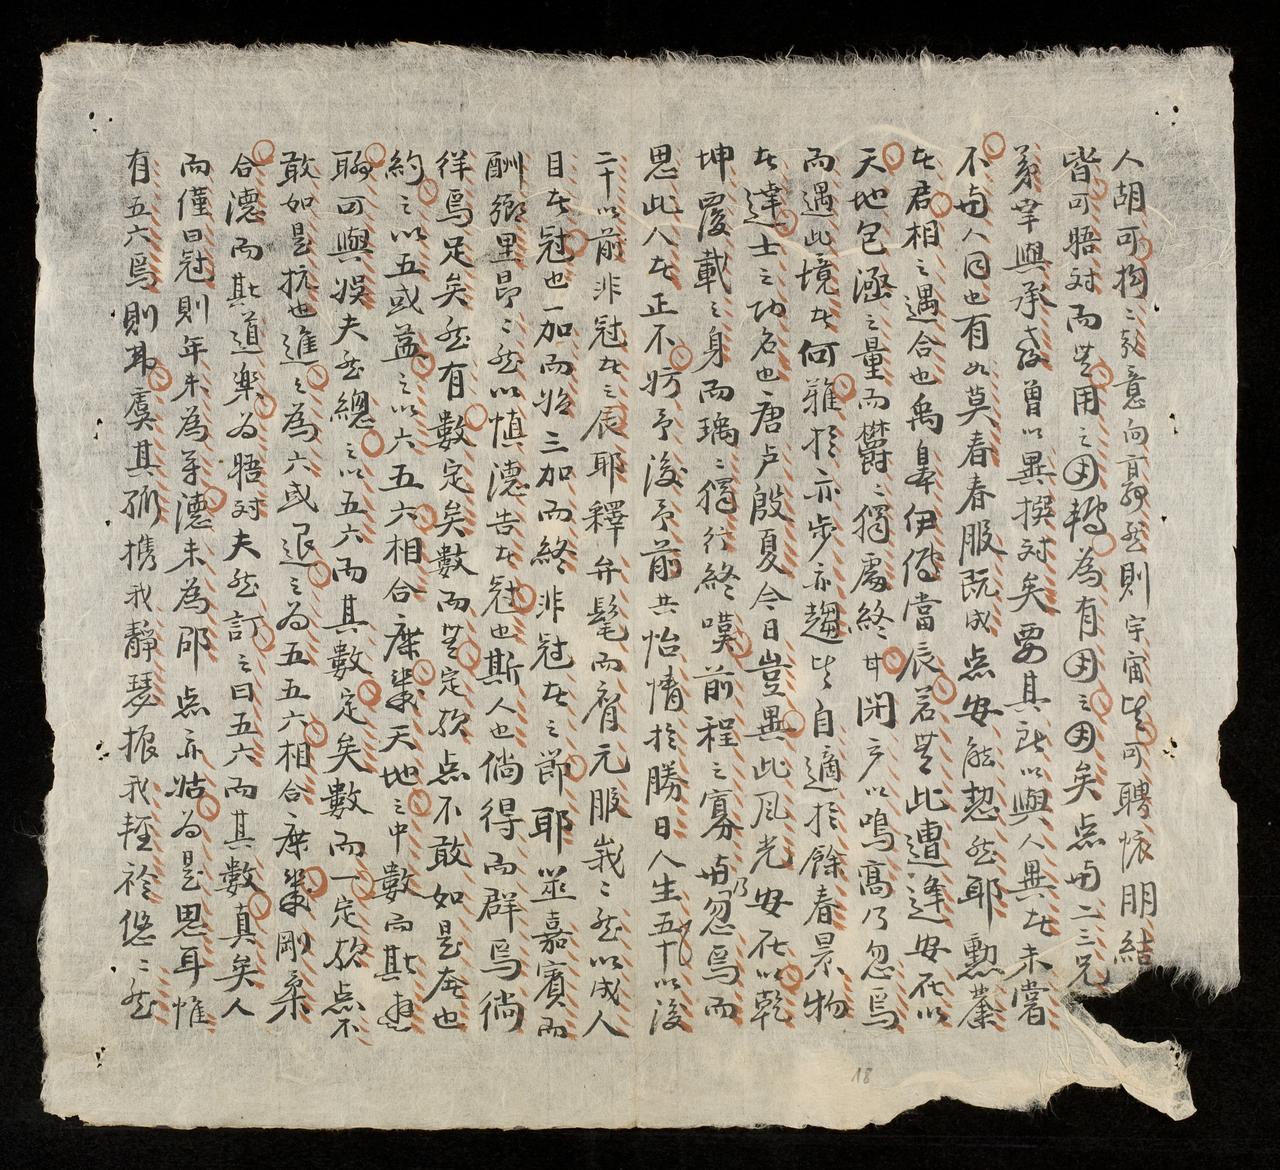 人胡可拘拘数意向亰然則宇宙皆可聘懷朋結
皆可晤对而無用之因轉為有因之因矣点与二三兄
弟畢與承教曾以異撰対矣要其所以與人異者未嘗
不与人同也有如莫春春服既成点安能恝然耶勲業
者君相之遇合也禹皐伊傅當辰若無此遭逢安所以
天地包涵之量而欝欝獨處終
開户以鳴高乃忽焉
而遇此境者何雅於亦步亦趨皆自適於餘春景物
者達士之功名也唐卢殷夏今日豈異此風光安所以乾
坤覆載之身而踽踽獨行終嘆前程之寡与乃忽焉而
思此人者正不妨予後予前共怡情於勝日人生五十以後
二十以前非冠者之辰耶釋弁髦而膺元服峩峩然以成人
目者冠也一加而始三加而終非冠者之節耶筮嘉賓而
酬鄉里昂昂然以慎德告者冠也斯人也倘得而群焉徜
徉焉足矣然有數定矣數而無定欤点不敢如是奢也
約之以五或益之以六五六相合庶幾天地之中數而其
聊可與娛夫然總之以五六而其數定矣數而一定欤点不
敢如是抗也進之為六或退之為五五六相合庶幾剛柔
合德而其道樂為晤対夫然訂之曰五六而其數真矣人
而僅曰冠則年未為
德未為邵点亦姑為是思耳惟
有五六焉則耳虞其
携我靜琴振我輕
悠悠然